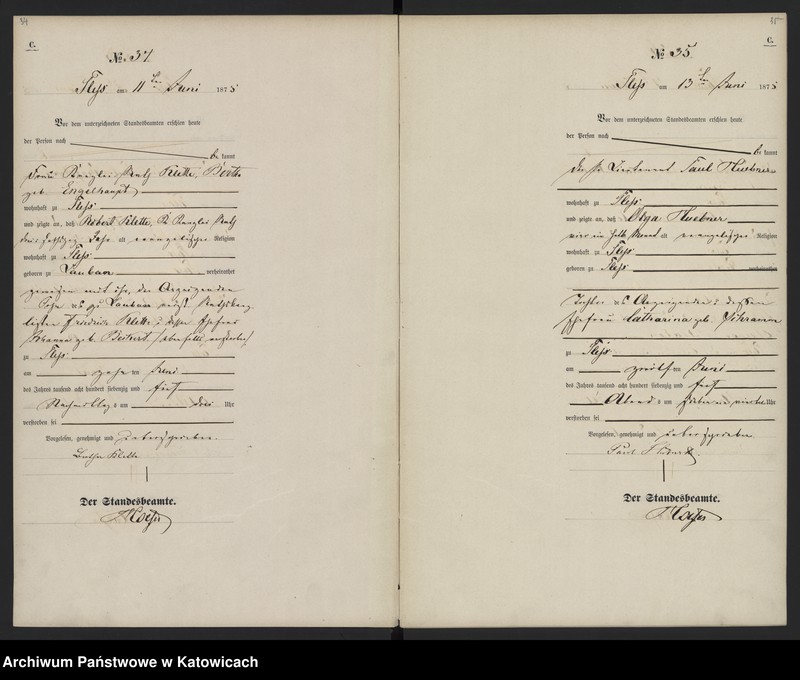 34
C.
№ 34
Pleß am 11ten Juni 1875
Vor dem unterzeichneten Standesbeamten erschien heute
der Person nach
be kannt
Frau Kanzlei Rath Klette, Bertha
geb. Engelhaupt
wohnhaft zu Pleß
und zeigte an, daß Robert Klette, Kanzlei Rath
Jahr alt evangelischer Religion
wohnhaft zu Pleß
geboren zu Lauban verheirathet
gewesen mit ihr, der Anzeigenden
Sohn des zu Lauban
Friedrich Klette, dessen Ehefrau
Johanna geb.
zu Pleß
am zehn ten Juni
des Jahres tausend acht hundert siebenzig und fünf
Nachmittags um drei Uhr
verstorben sei
Vorgelesen, genehmigt und unterschrieben
Bertha Klette
Der Standesbeamte.
35
C.
№ 35
Pleß am 13ten Juni 1875
Vor dem unterzeichneten Standesbeamten erschien heute
der Person nach
be kannt
der Lieutenant Paul Huebner
wohnhaft zu Pleß
und zeigte an, daß Olga Huebner
ein halb Monat alt evangelischer Religion
wohnhaft zu Pleß
geboren zu Pleß verheirathet
Tochter des Anzeigenden und dessen
Ehefrau Catharina geb. Schramm
zu Pleß
am zwölf ten Juni
des Jahres tausend acht hundert siebenzig und fünf
Abends um sieben Uhr
verstorben sei
Vorgelesen, genehmigt und unterschrieben
Paul Huebner
Der Standesbeamte.
Archiwum Państwowe w Katowicach